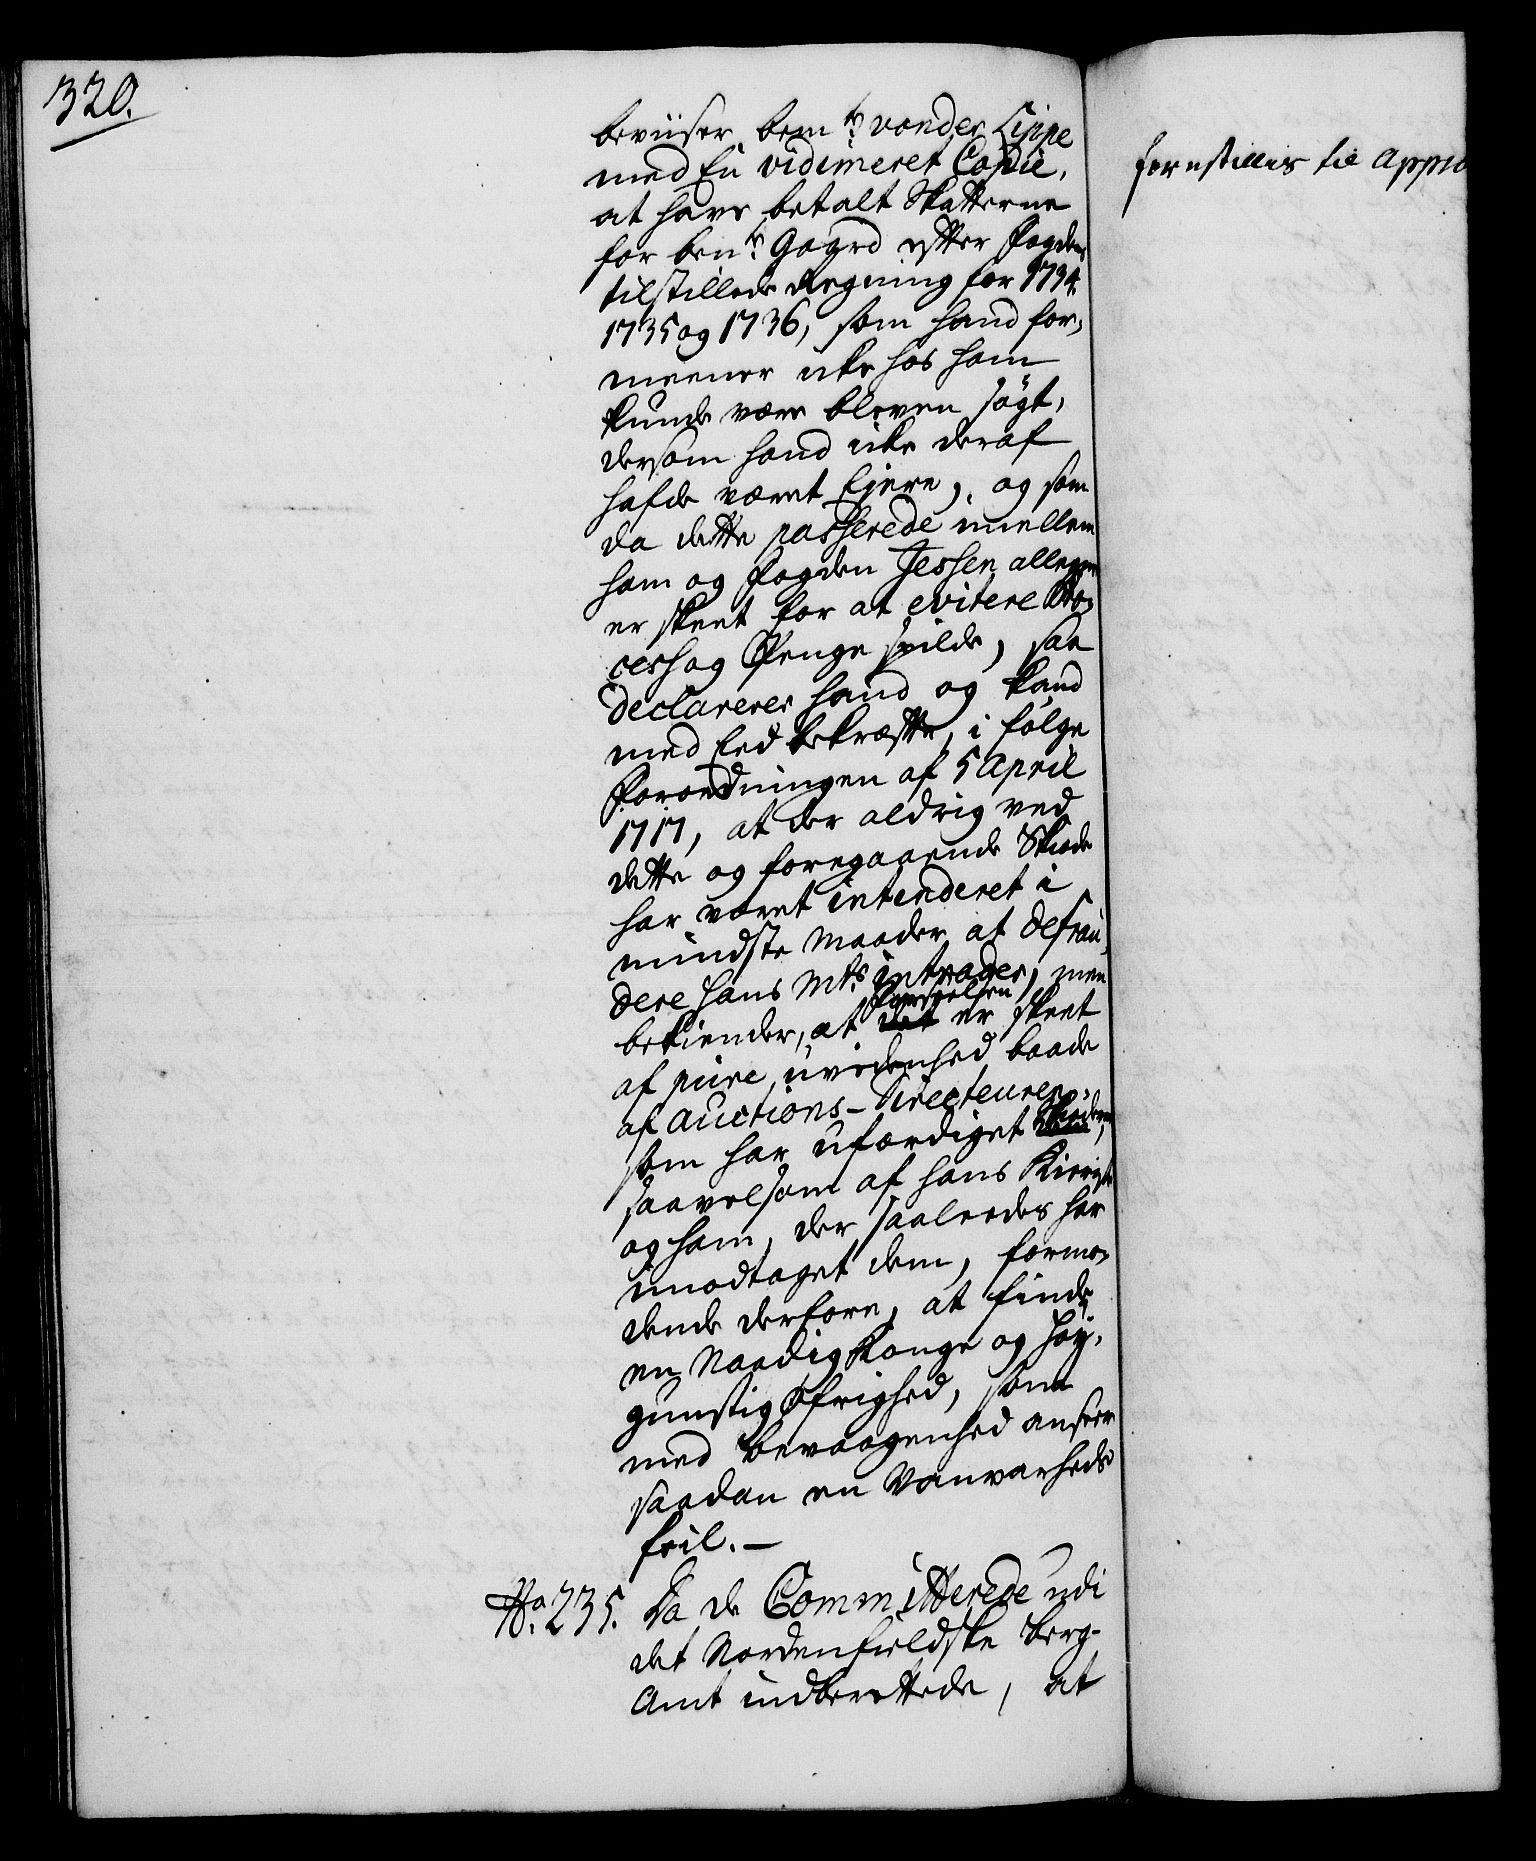 320.
beviiser bemte vonder Lippe
med En vidimeret Copie,
at have betalt Skatterne
for bente Gaard efter Fogdens
tilstillede Regning for 1734.
1735 og 1736, som hand for,,
meener icke hos ham
kunde være bleven søgt,
dersom hand icke deraf
hafde været Ejere, og som
da dette passerede imellem
ham og Fogden Jessen allene
er skeet for at evitere Pro,,
cess og Penge spilde, saa
declarerer hand og kand
med Eed bekræfte, i følge
Forordningen af 5 April
1717, at der aldrig ved
dette og foregaaende Skiøde
har været intenderet i
mindste Maader at defrau,,
dere hans Mts intrader, men
bekiender, at Forseelsen er skeet
af pure uvidenhed baade
af Auctions-Directeuren,
som har ufærdiget Skiøderne,
saavelsom af hans Kiereste
og ham, der saaledes har
imodtaget dem, formo,,
dende derfore, at finde
en Naadig Konge og Høj,,
gunstig Øfrighed, som
med bevaagenhed anseer
saadan en Vanvarheds
feil. –
No. 235. Da de Committerede udi
det Nordenfieldske Berg-
Amt indberettede, at
fornstilles til Appro